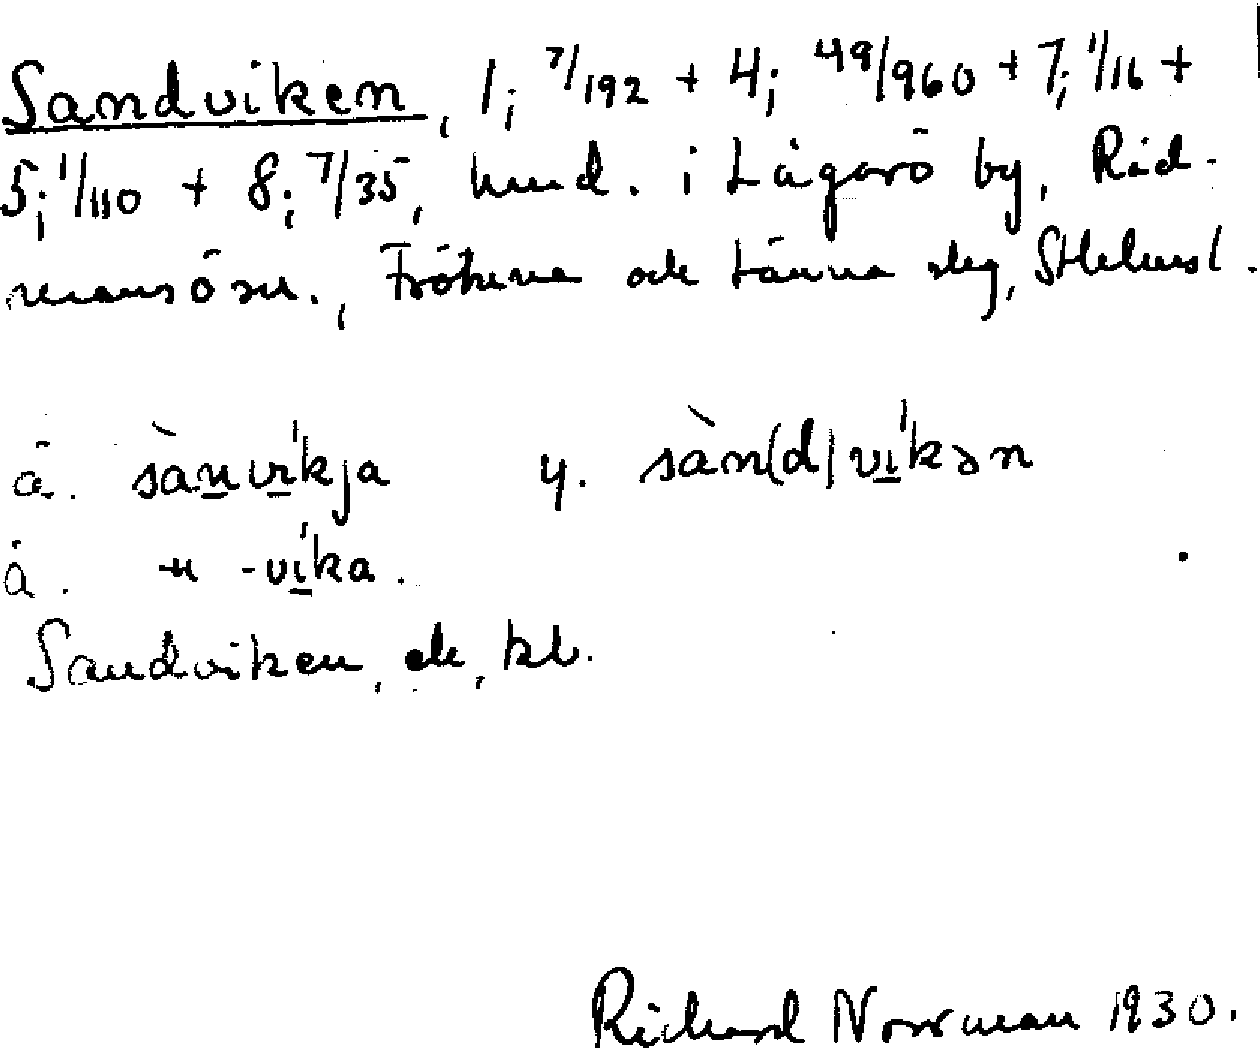 Sandviken, 1; 7/192 + 4; 49/960 + 7; 1/16 +
5; 1/110 + 8; 7/35, hmd. i Lågarö by, Råd-
mansö sn., Frötuna och Länna slg, Sthlmsl.
ä. sànvíkja y. sàn(d)víkən
ä. -víka.
Sandviken, ek, kb.
Richard Norrman 1930.